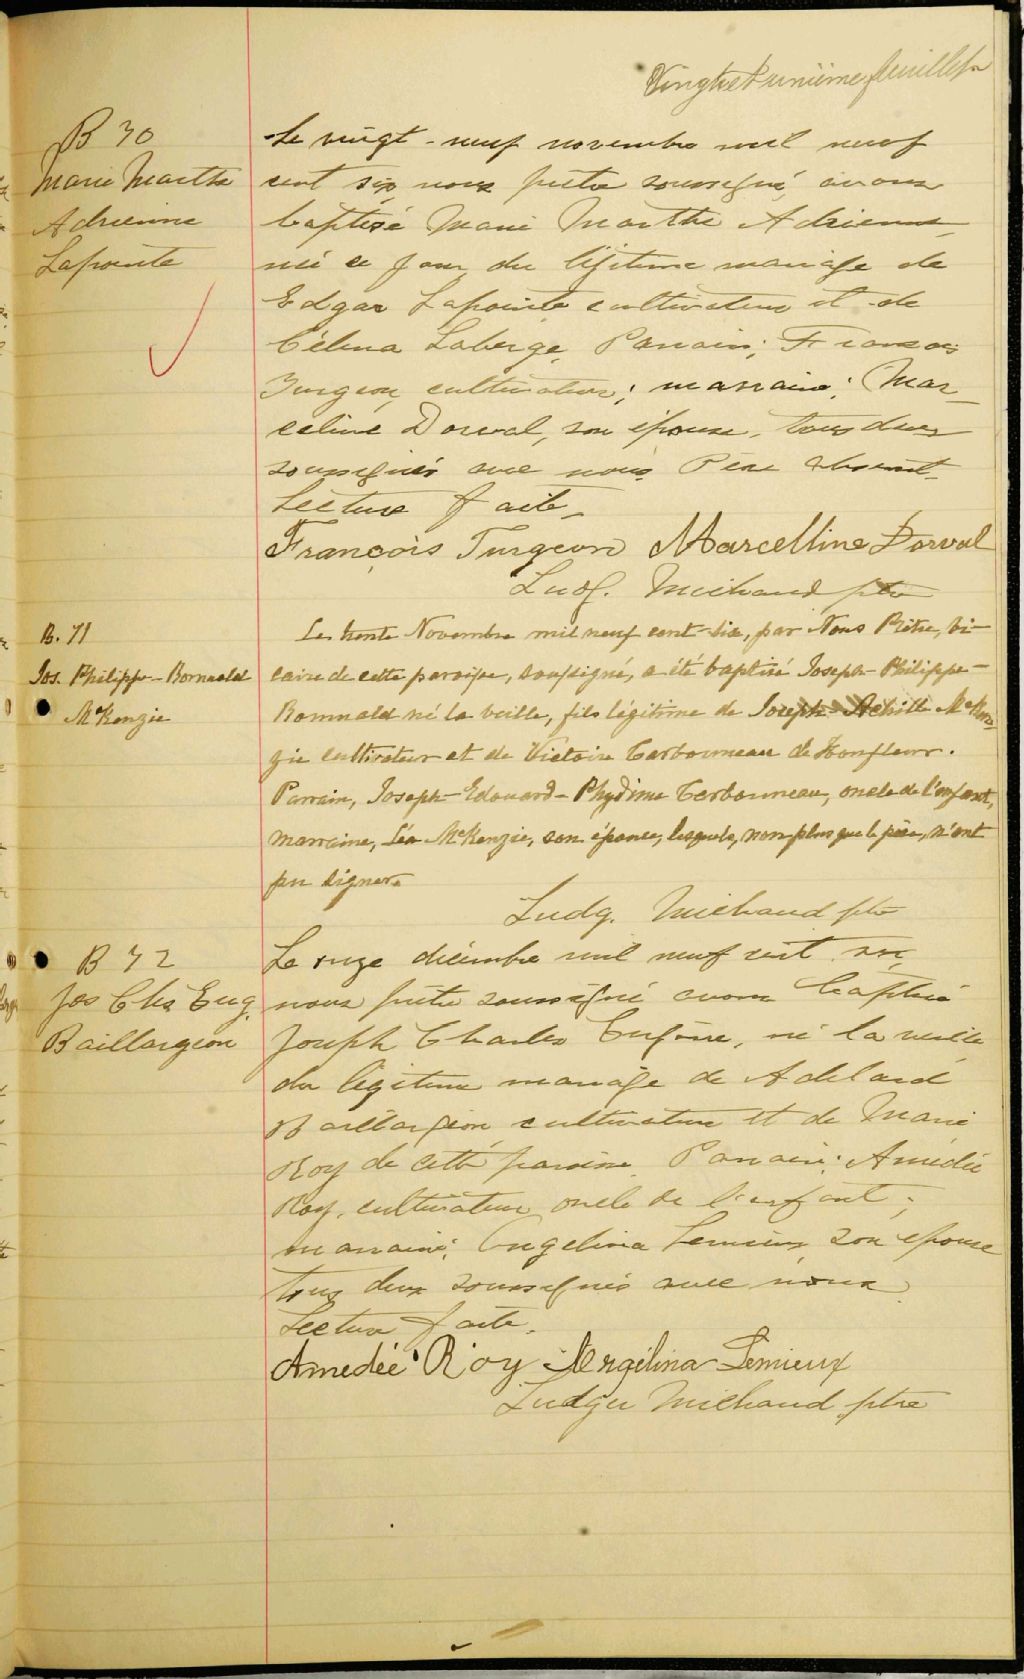 Vingt et unième feuillet
B 70
Marie Marthe
Adrienne
Lapointe
Le vingt-neuf novembre mil neuf
cent six nous prêtre soussigné, avons
baptisé Marie Marthe Adrienne
née ce jour du légitime mariage de
Edgar Lapointe cultivateur et de
Célina Laberge. Parrain; François
Turgeon, cultivateur; marraine; Mar-
celine Dorval, son épouse, tous deux
soussignés avec nous. Père absent.
Lecture faite.
François Turgeon Marcelline Dorval
Ludg. Michaud ptre
B. 71
Jos. Philippe-Romuald
McKenzie
Le trente Novembre mil neuf cent-six, par Nous Prêtre, vi-
caire de cette paroisse, soussigné, a été baptisé Joseph-Philippe-
Romuald né la veille, fils légitime de Joseph-Achille McKen-
zie cultivateur et de Victoire Carbonneau de Honfleur.
Parrain, Joseph-Edouard-Phydime Carbonneau, oncle de l'enfant,
marraine, Léa McKenzie, son épouse, lesquels, non plus que le père, n'ont
pu signer.
Ludg. Michaud ptre
B 72
Jos Chs Eug.
Baillargeon
Le onze décembre mil neuf cent six,
nous prêtre soussigné avons baptisé
Joseph Charles Eugène, né la veille
du légitime mariage de Adélard
Baillargeon cultivateur et de Marie
Roy de cette paroisse. Parrain: Amédée
Roy, cultivateur oncle de l'enfant;
marraine; Angelina Lemieux son épouse
tous deux soussignés avec nous.
Lecture faite.
Amedée Roy Angélina Lemieux
Ludger Michaud ptre